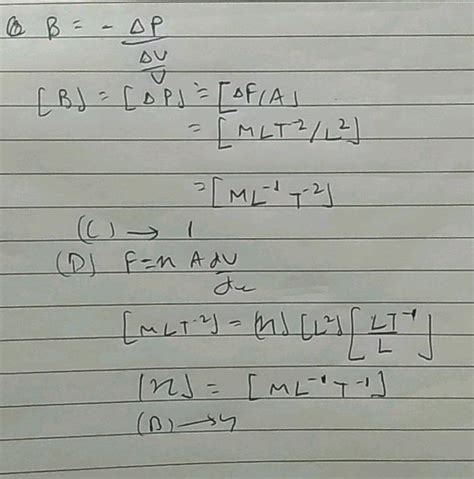 B = - ΔP
ΔV
V
[B] = [ΔP] = [ΔF/A]
= [MLT⁻²/L²]
= [ML⁻¹T⁻²]
(C) → 1
(D) F = η A dv
dx
[MLT⁻²] = [η] [L²] [LT⁻¹/L]
[η] = [ML⁻¹T⁻¹]
(B) → 4